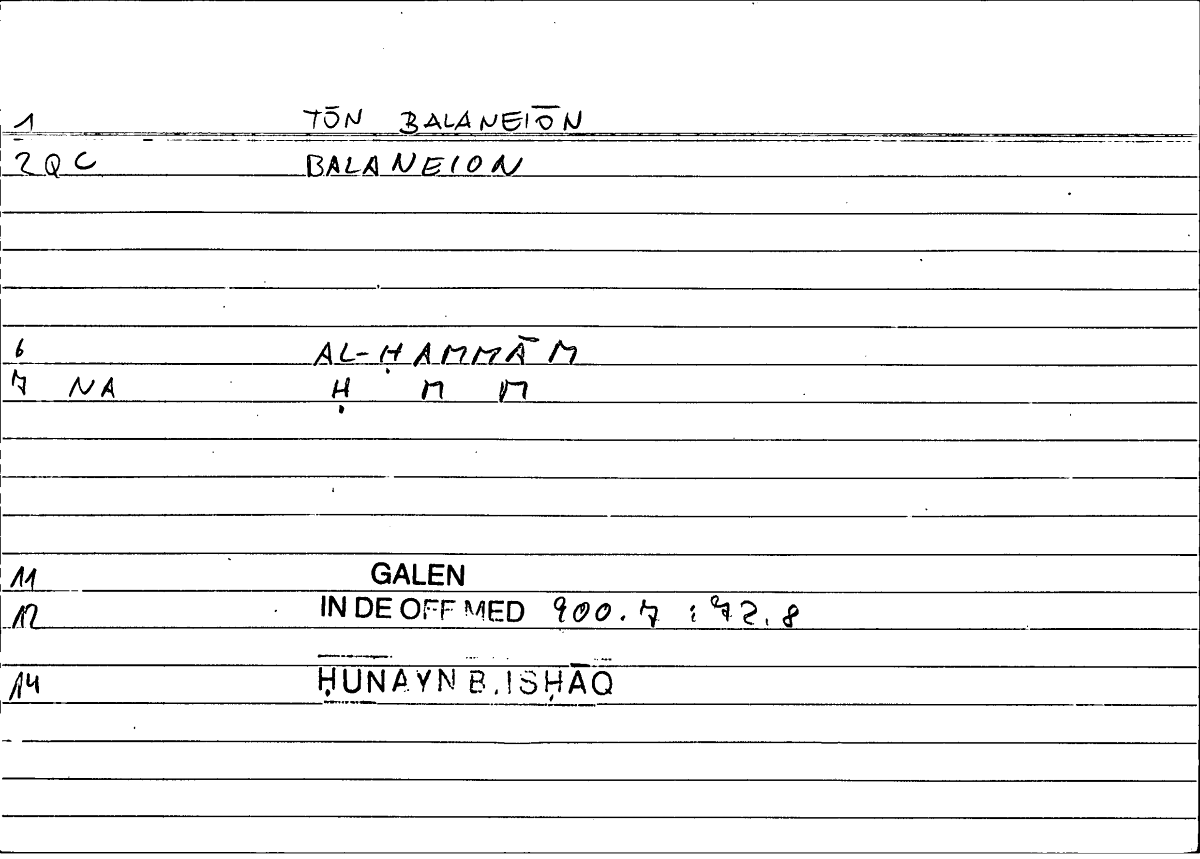 1 TŌN BALANEIŌN
2 QC BALANEION
6 AL-ḤAMMĀM
7 NA Ḥ M M
11 GALEN
12 IN DE OFF MED 900.7 : 72.8
14 ḤUNAYN B. ISḤĀQ